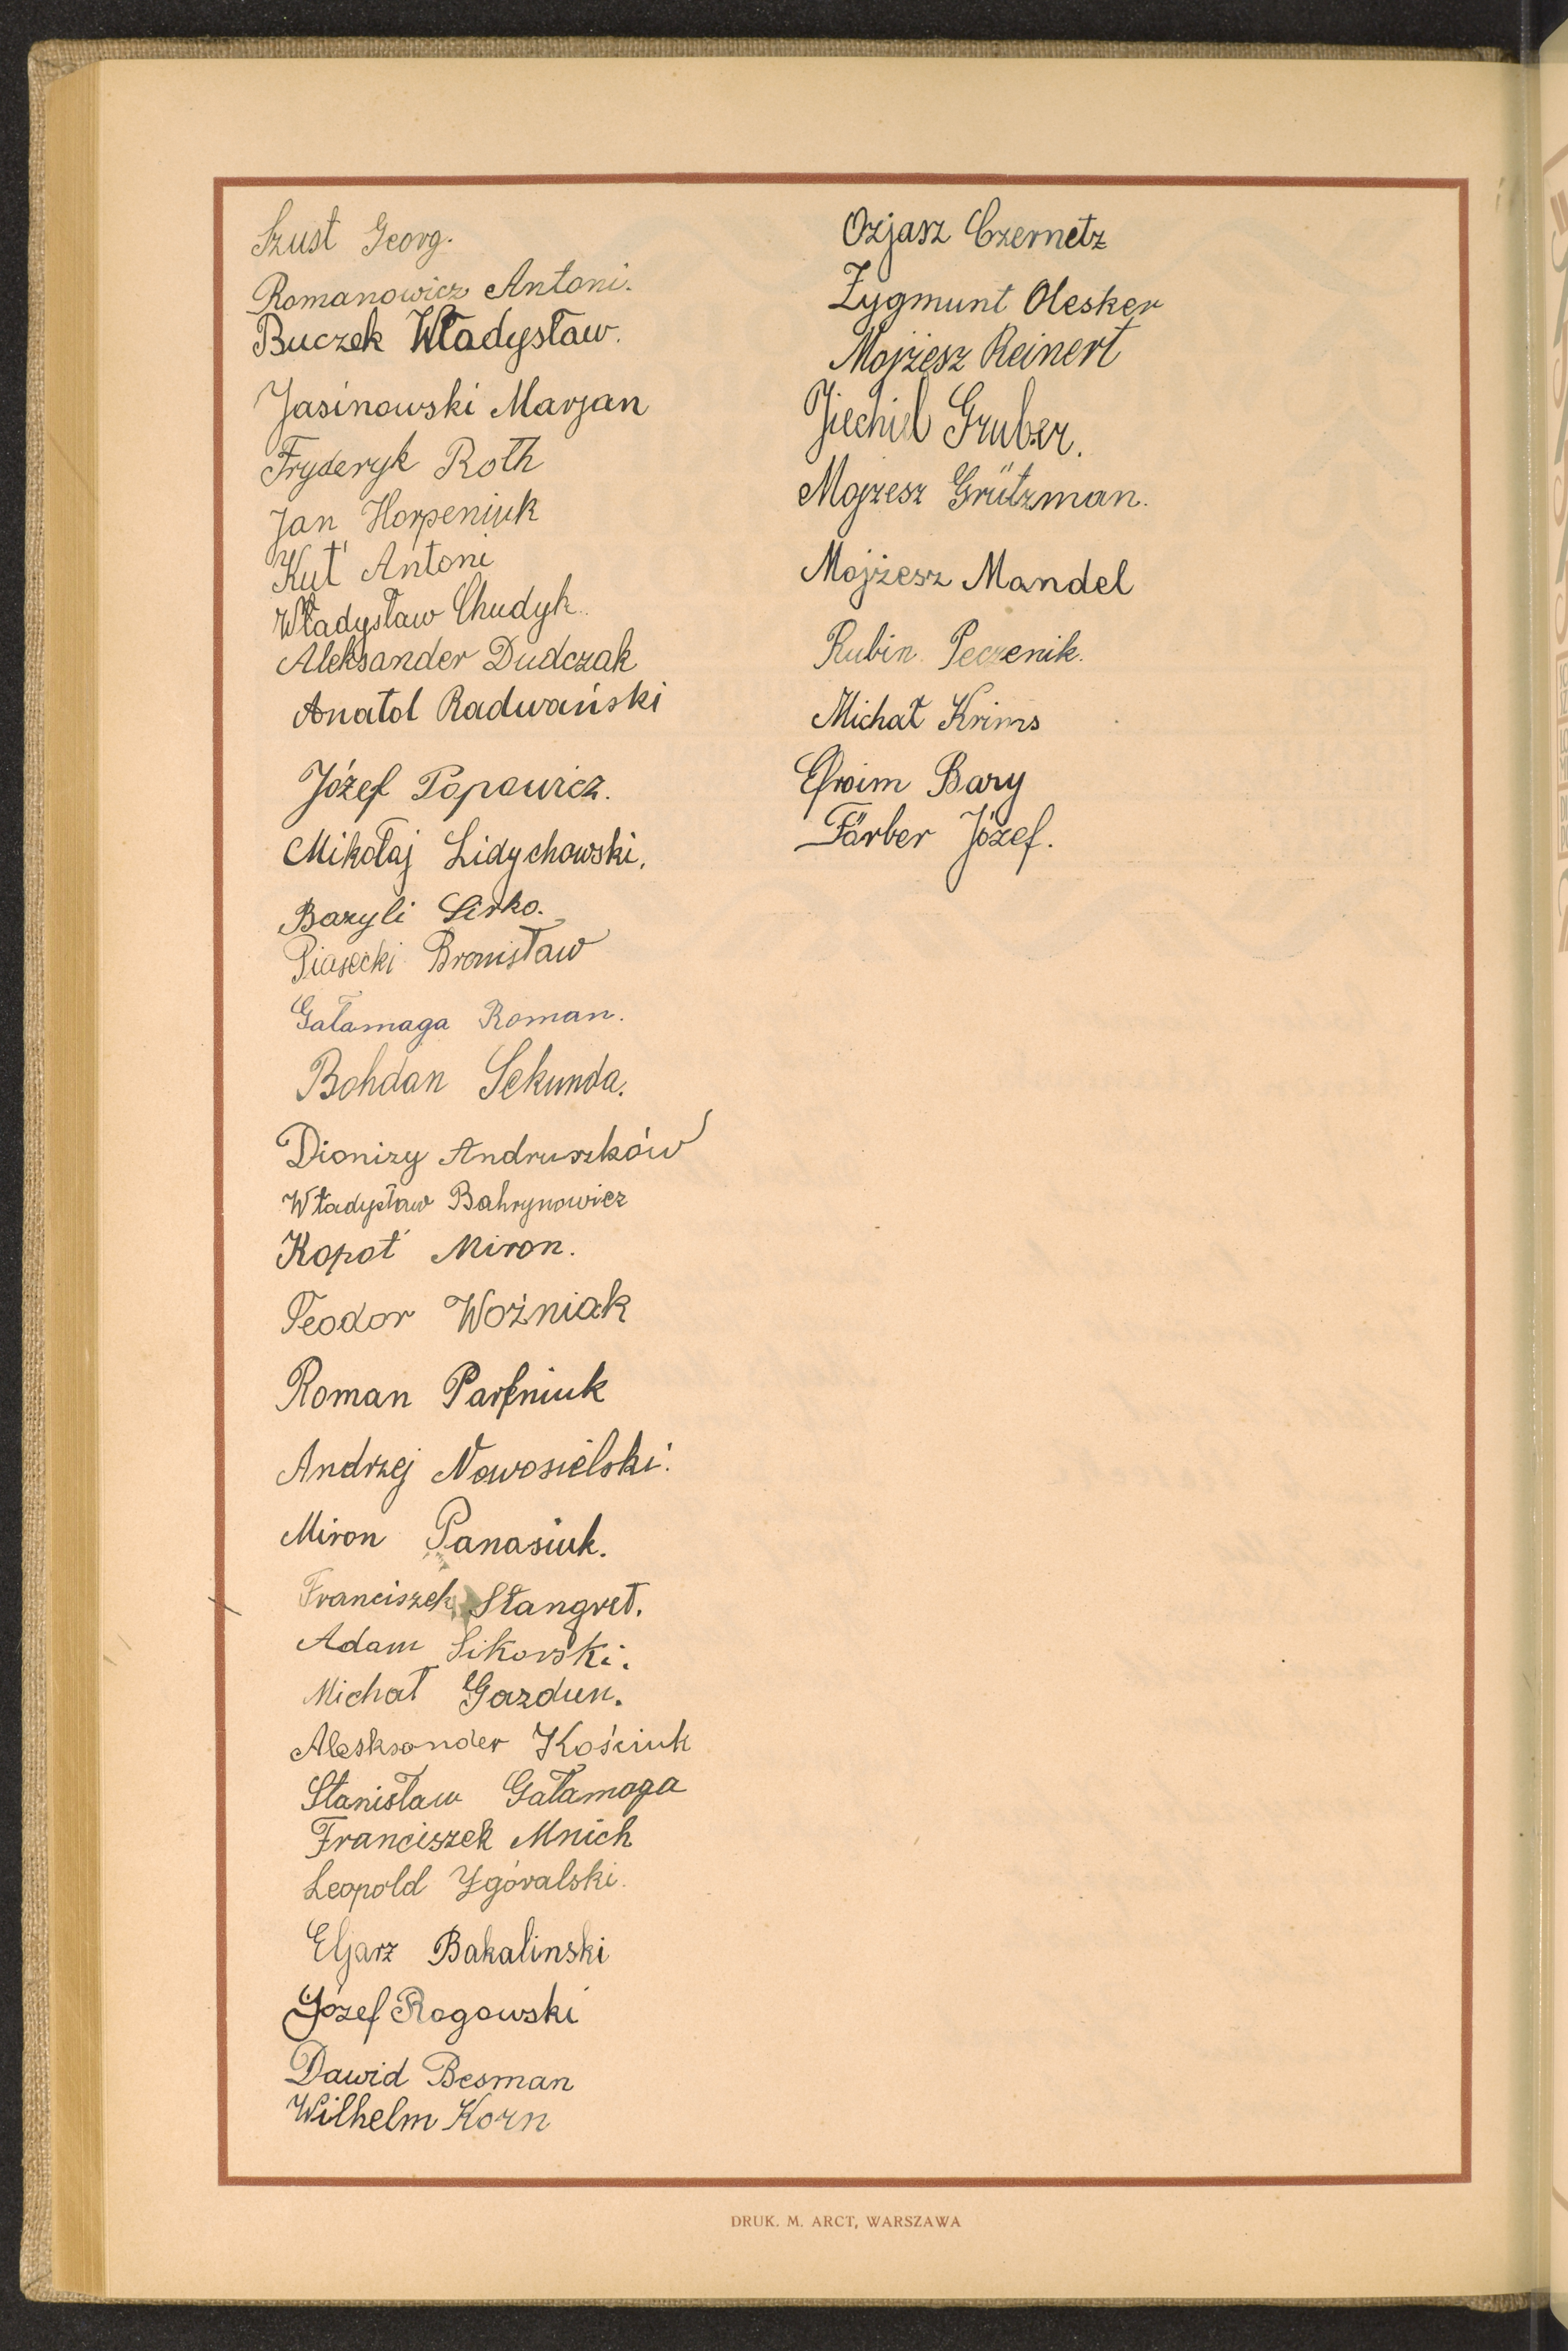 Szust Georg.
Romanowicz Antoni.
Buczek Władysław.
Jasinowski Marjan
Fryderyk Roth
Jan Horpeniuk
Kut' Antoni
Władysław Chudyk.
Aleksander Dudczak
Anatol Radwański
Józef Popowicz.
Mikołaj Lidychowski.
Bazyli Lirko.
Piasecki Bronisław
Gałamaga Roman.
Bohdan Sekunda.
Dionizy Andruszków
Władysław Bahrynowicz
Kopot' Miron.
Teodor Woźniak
Roman Parfniuk
Andrzej Nowosielski.
Miron Panasiuk.
Franciszek Stangret.
Adam Sikorski.
Michał Gazdun.
Alesksander Kościuk
Stanisław Gałamaga
Franciszek Mnich
Leopold Zgóralski.
Eljarz Bakalinski
Józef Rogowski
Dawid Besman
Wilhelm Korn
Ozjasz Czernetz
Zygmunt Olesker
Mojżesz Reinert
Jiechiel Gruber.
Mojzesz Grützman.
Mojżesz Mandel
Rubin Peczenik.
Michał Krims
Efroim Bary
Färber Józef.
DRUK. M. ARCT, WARSZAWA